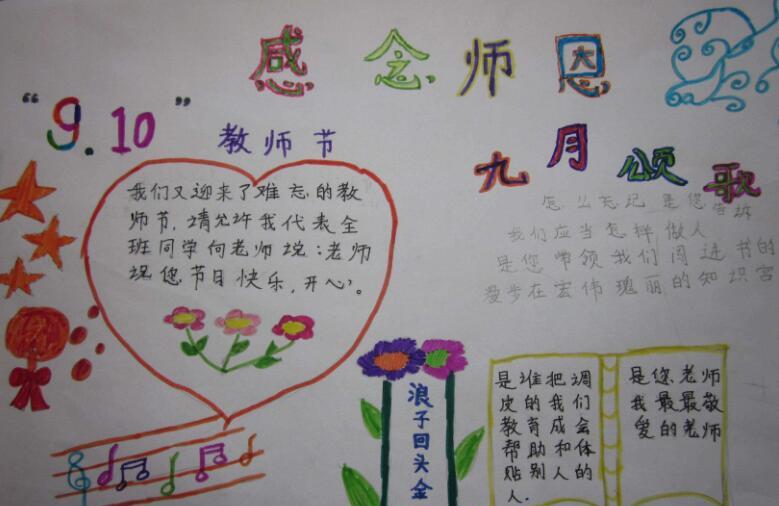 感念师恩
“9.10”
教师节
九月颂歌
我们又迎来了难忘的教
师节,请允许我代表全
班同学向老师说:老师
祝您节日快乐,开心。
怎么忘记 是您告诉
我们应当怎样做人
是您带领我们闯进书的
爱步在宏伟瑰丽的知识宫
浪子回头金
是谁把调
皮的我们
教育成会
帮助和体
贴别人的
人.
是您老师
我最最敬
爱的老师